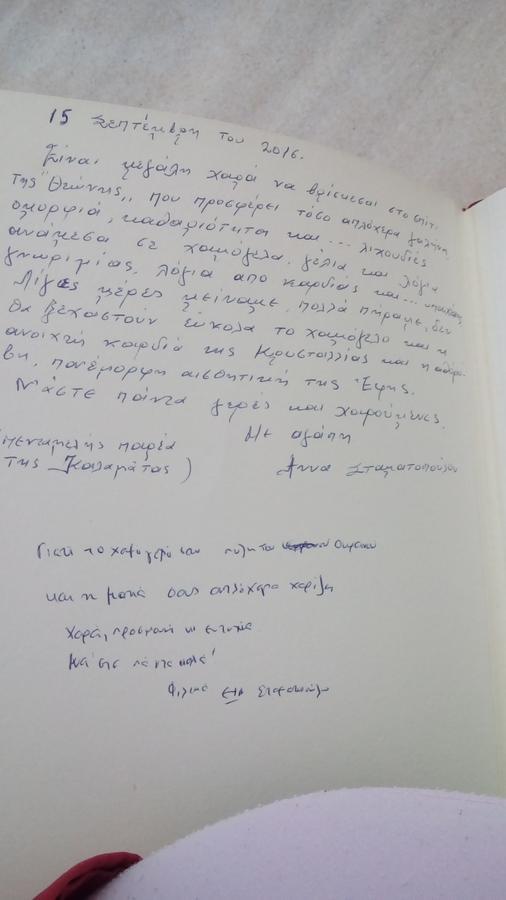 15 Σεπτέμβρη του 2016.
Είναι μεγάλη χαρά να βρίσκεσαι στο σπίτι
της "Θεώνης,, που προσφέρει τόσο απλόχερα γαλήνη,
ομορφιά, καθαριότητα και.... λιχουδιές
ανάμεσα σε χαμόγελα, γέλια και λόγια
γνωριμίας, λόγια από καρδιάς και...
Λίγες μέρες μείναμε, πολλά πήραμε, δεν
θα ξεχαστούν εύκολα το χαμόγελο και η
ανοιχτή καρδιά της Κρυσταλλίας και η αθόρυ-
βη, πανέμορφη αισθητική της Έφης.
Νάστε πάντα γερές και χαρούμενες.
Με αγάπη
(πενταμελής παρέα
της Καλαμάτας)
Άννα Σταματοπούλου
Γιατί το χαμόγελό σου του ουρανού
και η ματιά σας απλόχερα χαρίζει
χαρά, προσμονή κι ευτυχία
Νά 'στε πάντα καλά!
Φιλικά